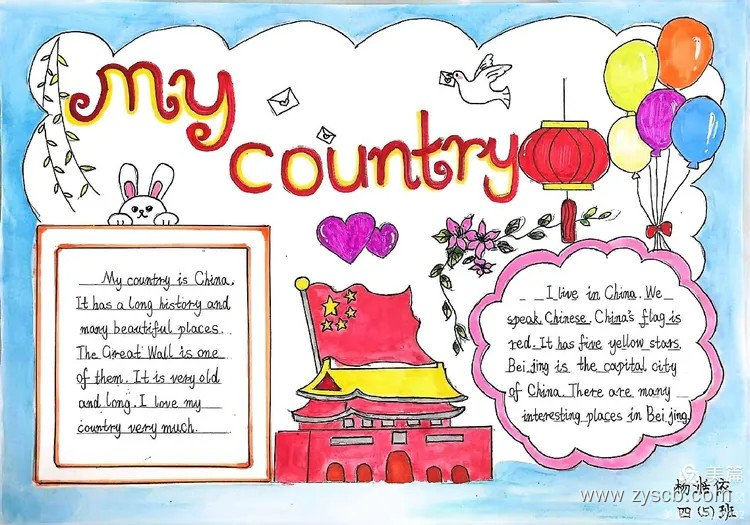 My
country
My country is China.
It has a long history and
many beautiful places.
The Great Wall is one
of them. It is very old
and long. I love my
country very much.
I live in China. We
speak Chinese. China's flag is
red. It has five yellow stars.
Bei jing is the capital city
of China. There are many
interesting places in Bei jing.
美篇
www.zyscb.com
四(5)班